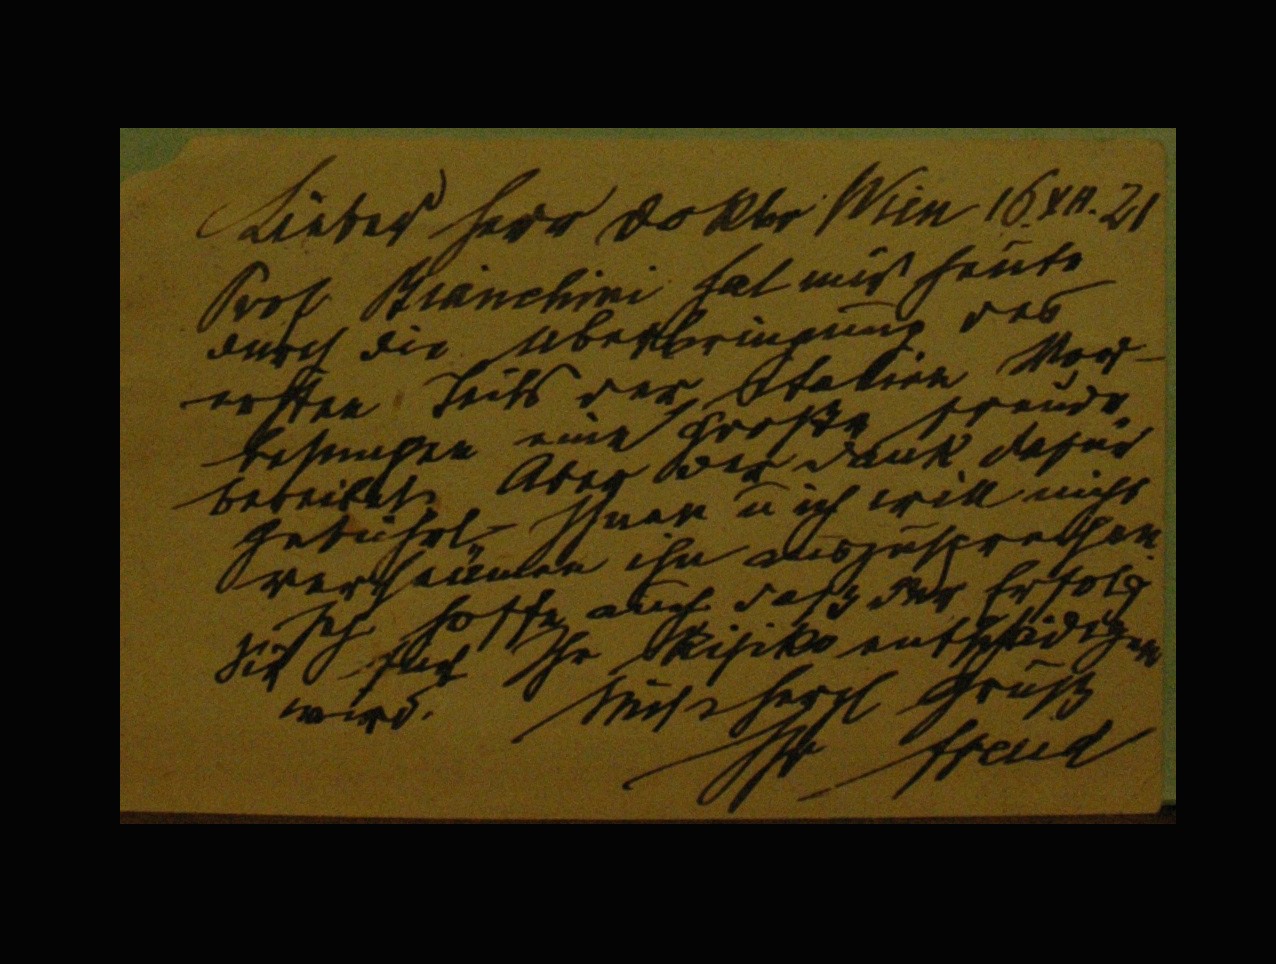 Lieber Herr Doktor Wien 16 XII. 21
Prof. Bianchini hat mir heute
durch die Überbringung des
ersten Teils der Italien Vor-
lesungen eine große Freude
bereitet. Aber der Dank dafür
gebührt Ihnen u ich will nicht
versäumen ihn auszusprechen.
Ich hoffe auch daß der Erfolg
Sie für Ihr Risiko entschädigen
wird.
Mit herzl Gruß
Ihr Freud